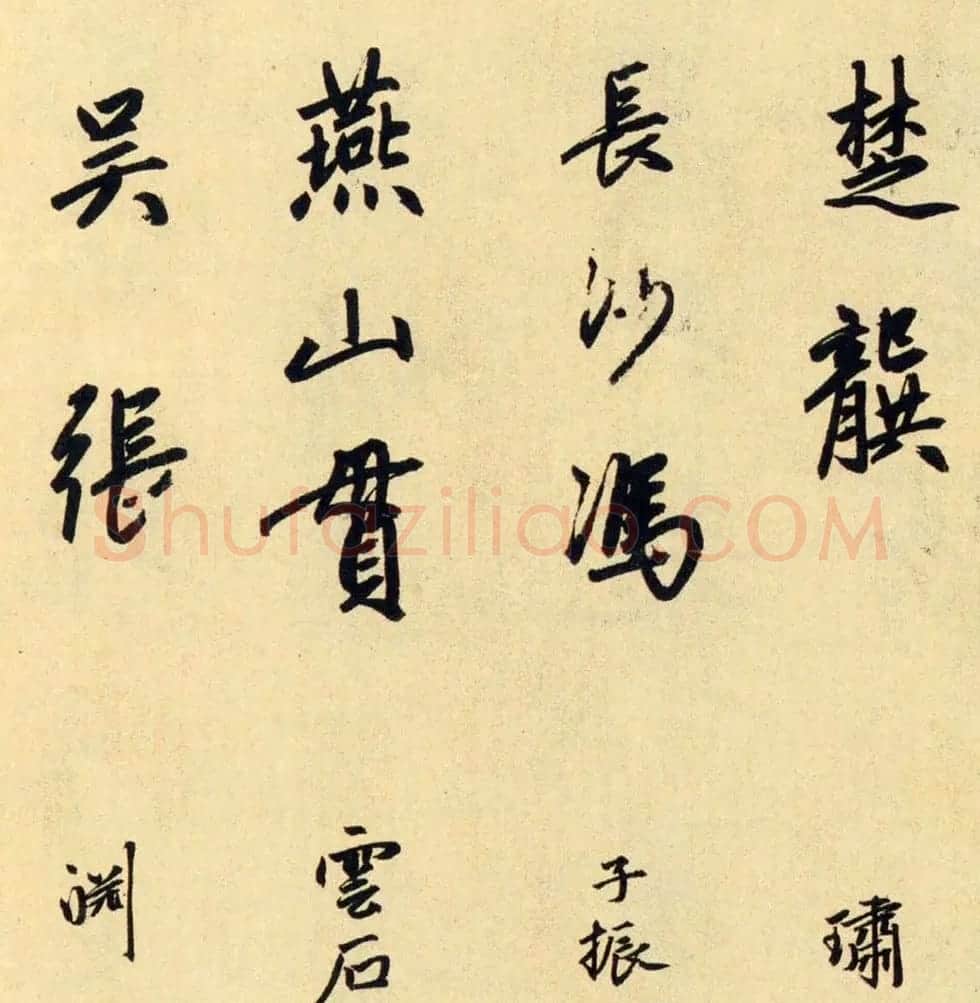 楚龔璛
長沙馮子振
燕山貫雲石
吴張渊
Shufaziliao.COM